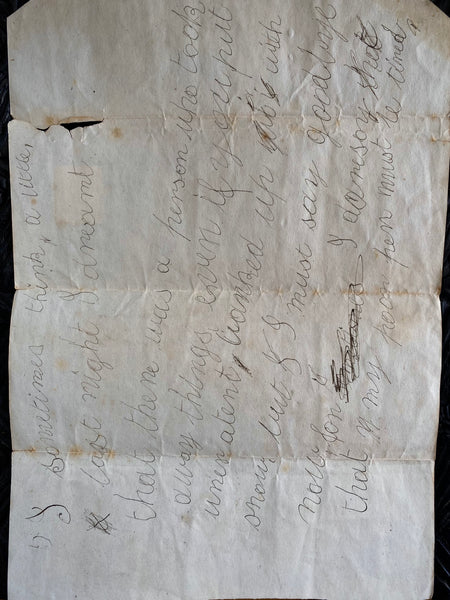 " I sometimes think, a little,
last night I dreamt
that there was a person who took
away things even if you put
banked up with
snow but I must say goodbye
now for I daresay that
that my poor pen must be tired,